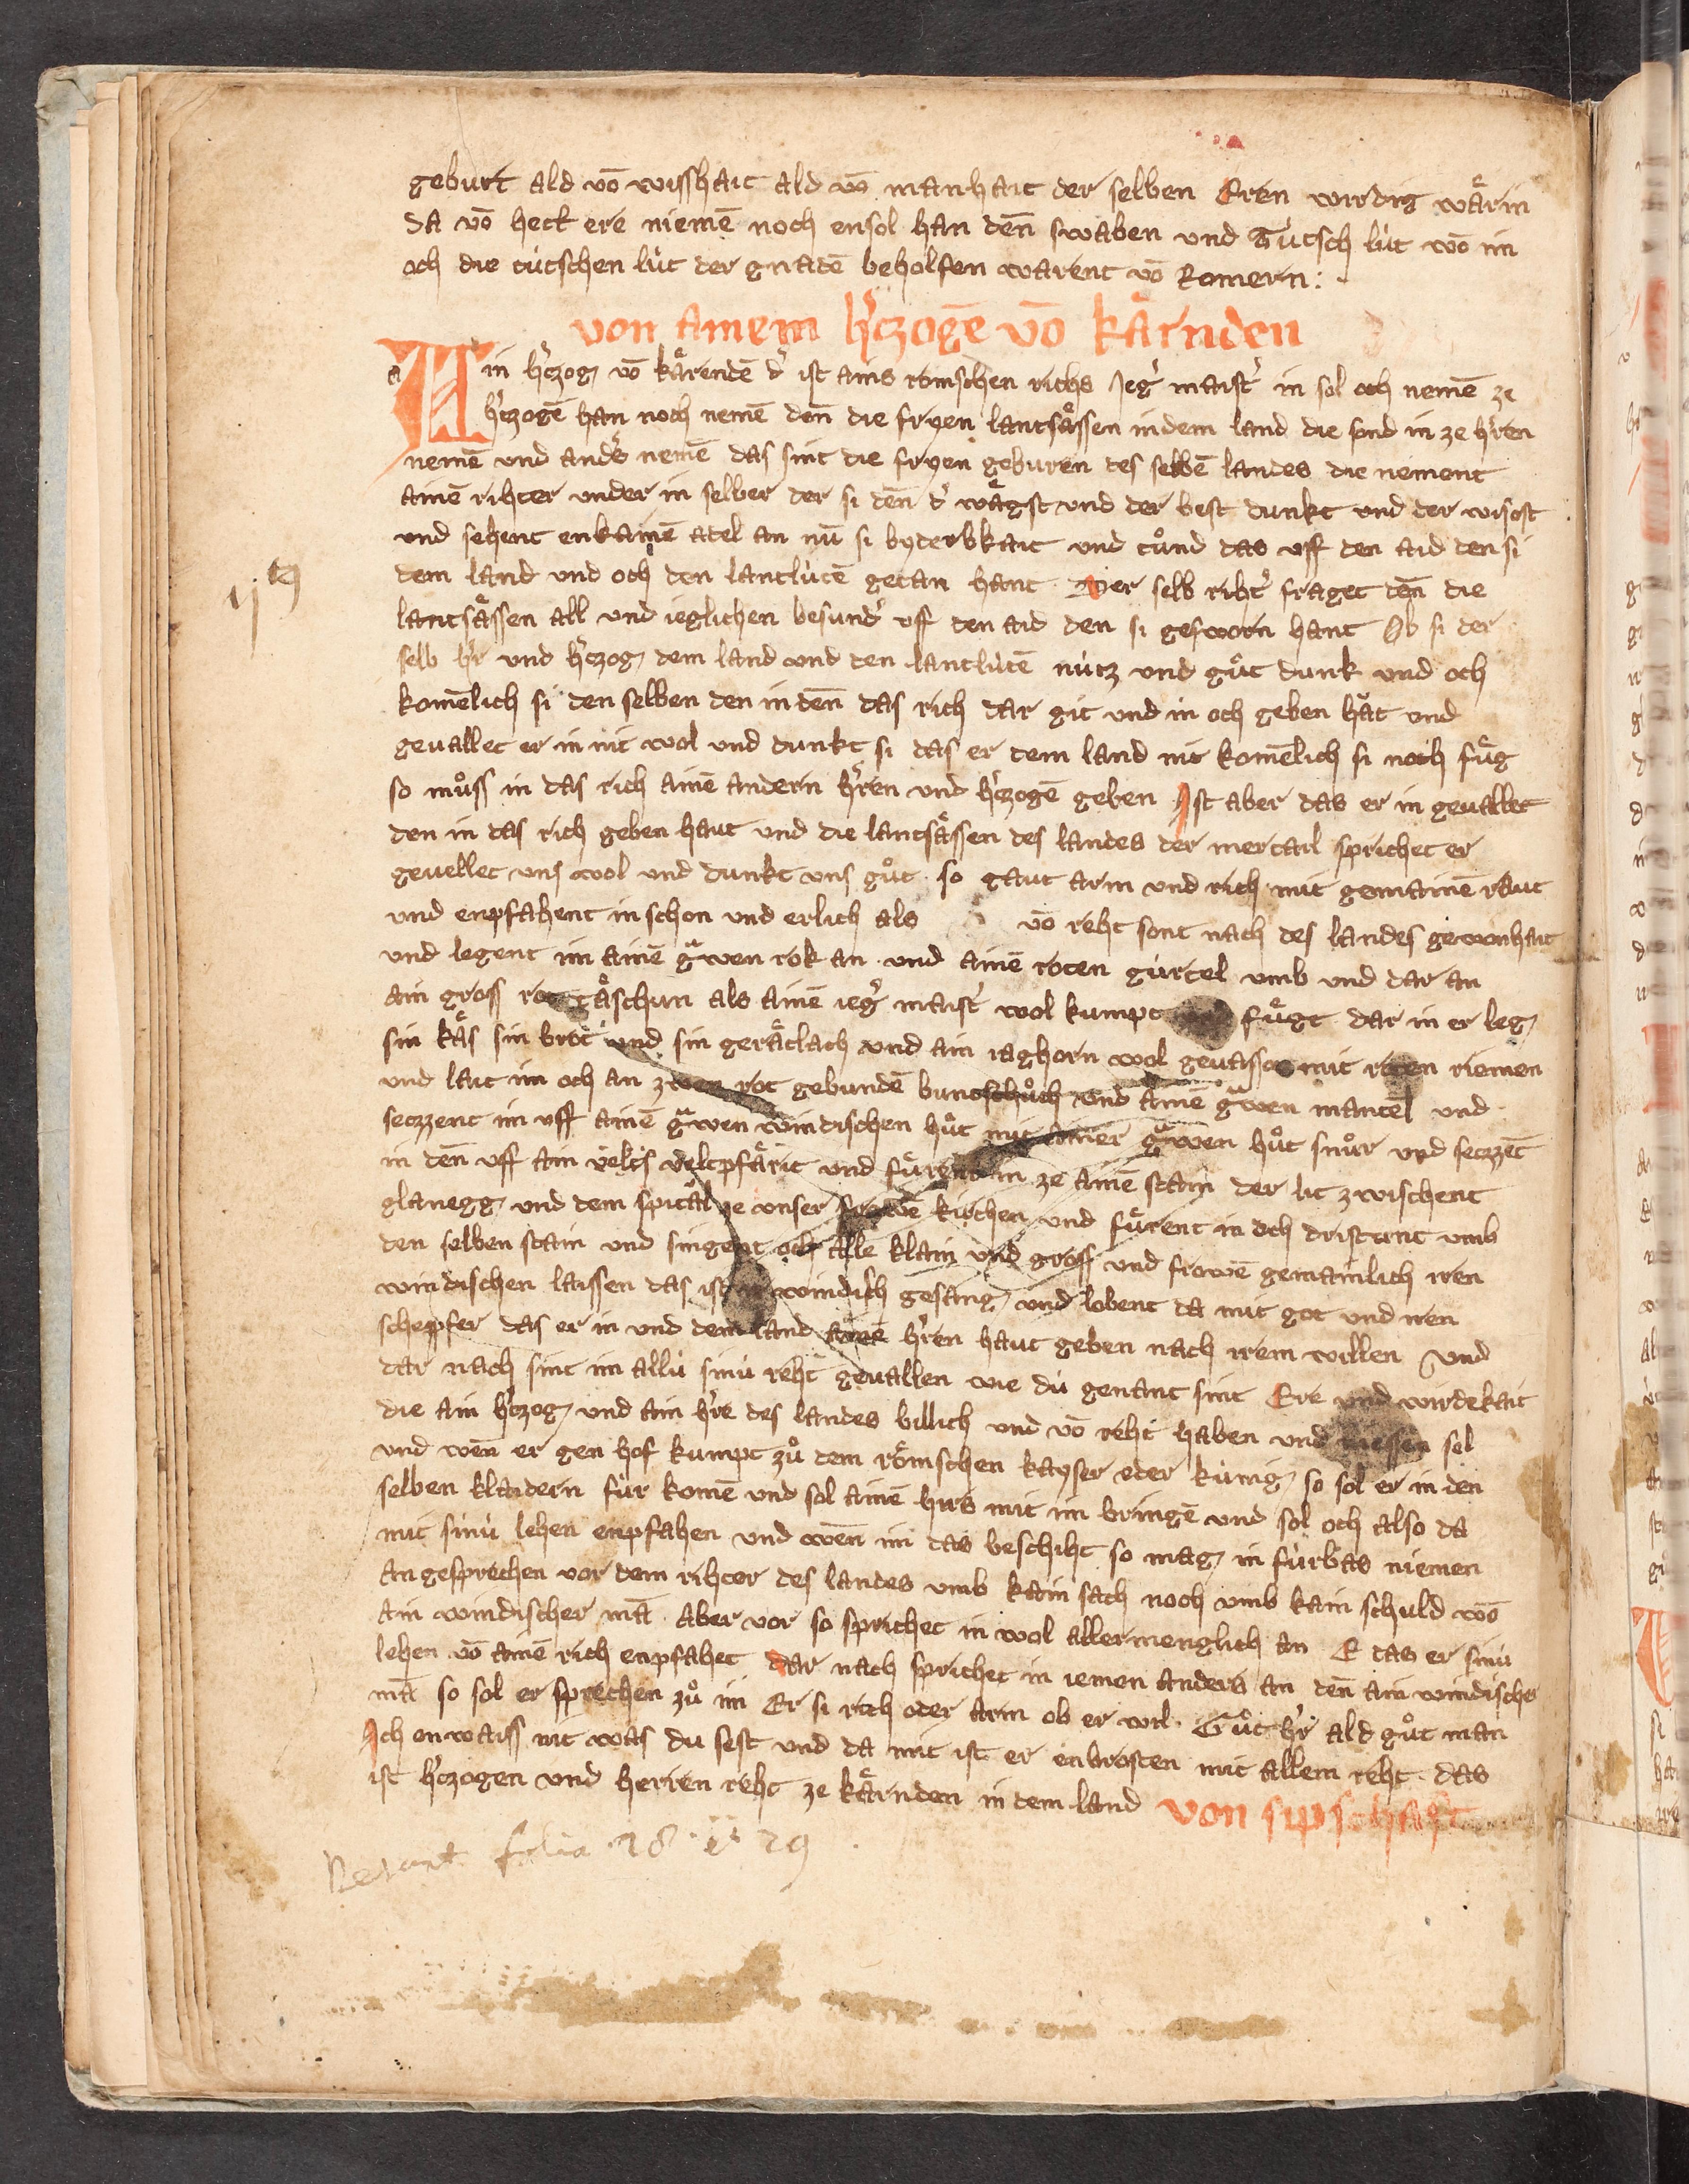 geburt ald võ wisshait ald võ manhait der selben Eren wirdig wärin
da võ hect ere niemẽ noch ensol han deñ swaben und Tútsch lút wõ im
och die tútschen lút der gnadẽ beholfen warent võ Romern :
von ainem h'czogẽ võ kärnden
Ain h'czog võ kärendẽ d' ist ains römschen richs Jeg' maist' in sol och nemẽ ze
h'czogẽ han noch nemẽ deñ die fryen lantsässen in dem land die sond in ze h'ren
nemẽ und anders nemẽ das sint die fryen geburen des selbẽ landes die nement
ainẽ rihter under in selber der si deñ d' wägst und der best dunkt und der wisost
und sehent enkainẽ adel an nũ si byderbkait und tůnd das uff den aid den si
dem land und och den lantlútẽ getan hant . Der selb riht' fraget deñ die
lantsässen all und ieglichen besund' uff den aid den si gesworn hant Ob si der
selb h'r und h'czog dem land und den lantlútẽ nútz und gůt dunk und och
komẽlich si den selben den in deñ das rich dar git und in och geben hăt und
gevallet er in nit wol und dunkt si das er dem land nit komẽlich si noch fůg
so můss in das rich ainẽ andern h'ren und h'czogẽ geben Ist aber das er in gevallet
den in das rich geben haut und die lantsässen des landes der mertail sprichet er
gevellet uns wol und dunkt uns gůt . so gaut arm und rich mit gemainẽ raut
und enpfahent in schon und erlich als võ reht sont nach des landes gewonhait
und legent im ainẽ gräwen rok an . und ainẽ roten gúrtel umb und dar an
ain gross rot täschun als ainẽ ieg' maist' wol kumpt fůgt dar in er leg
sin käs sin brot und sin gerätlach und ain iaghorn wol gevasset mit roten riemen
und lait im och an zwen rot gebundẽ buntschůch und ainẽ gräwen mantel und
seczzent im uff ainẽ gräwen windischen hůt mit ainer gräwen hůt snůr und seczzẽt
in deñ uff ain velts veltpfärit und fůrent in ze ainẽ stain der lit zwischent
glanegg und dem spital ze unser frowẽ kirchen und fůrent in och dristunt umb
den selben stain und singent och alle klain und gross und frowẽ gemainlich iren
windischen laissen das ist ir windisch gesang und lobent da mit got und iren
schepfer das er in und dem land ainẽ h'ren haut geben nach irem willen Und
dar nach sint im allú sinú reht gevallen wie dú genant sint Ere und wirdekait
die ain h'czog und ain h're des landes billich und võ reht haben und niessen sol
und weñ er gen hof kumpt zů dem römschen kayser oder kúnig so sol er in den
selben klaidern fúr komẽ und sol ainẽ hirs mit im bringẽ und sol och also da
mit sinú lehen enpfahen und weñ im das beschiht so mag in fúrbas niemen
an gesprechen vor dem rihter des landes umb kain sach noch umb kain schuld wõ
ain windischer mã . Aber vor so sprichet in wol allermenglich an E das er sinú
lehen võ ainẽ rich enpfahet Dar nach sprichet in iemen anders an deñ ain windischer
mã so sol er sprechen zů im Er si rich oder arm ob er wil . Gůt h'r ald gůt man
Ich enwaiss nit was du sest und da mit ist er enbrosten mit allem reht . das
ist h'czogen und herren reht ze kärnden in dem land von sipschaft
folia 28 et 29